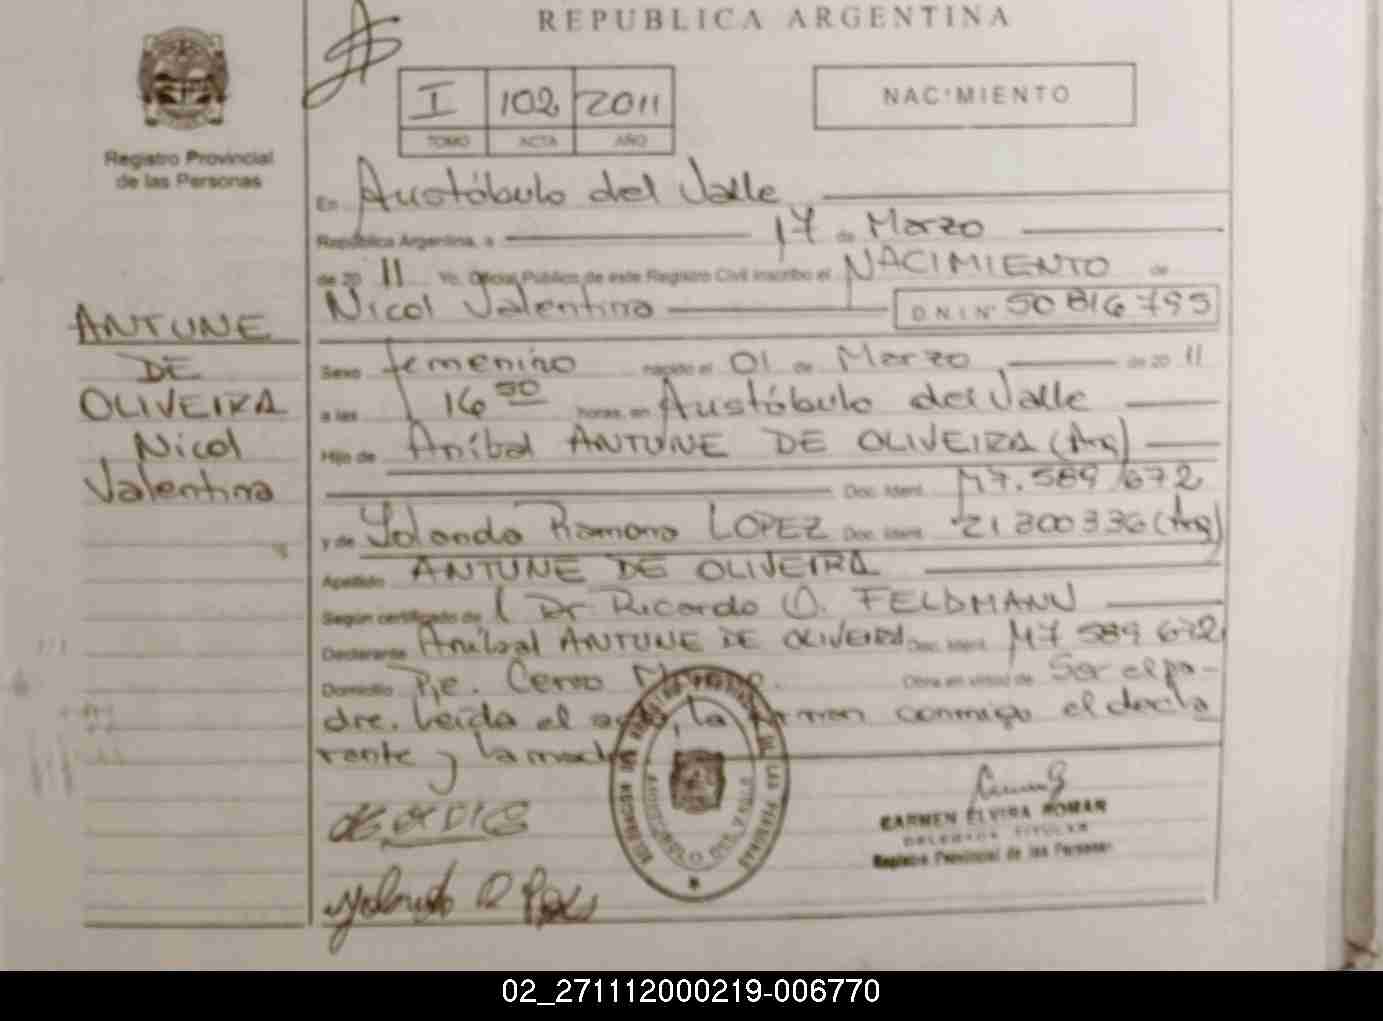 REPUBLICA ARGENTINA
Registro Provincial
de las Personas
I 102 2011
TOMO ACTA AÑO
NACIMIENTO
En Aristóbulo del Valle
República Argentina, a 17 de Marzo
de 20 11 Yo, Oficial Público de este Registro Civil inscribo el NACIMIENTO de
Nicol Valentina D.N.I. N° 50 816 795
ANTUNE
DE
OLIVEIRA
Nicol
Valentina
Sexo femenino nacido el 01 de Marzo de 20 11
a las 16 50 horas, en Aristóbulo del Valle
Hijo de Aníbal ANTUNE DE OLIVEIRA (Arg)
Doc. Ident. M7.589.672
y de Yolanda Ramona LOPEZ Doc. Ident. 21 300 336 (Arg)
Apellido ANTUNE DE OLIVEIRA
Según certificado de l Dr. Ricardo O. FELDMANN
Declarante Aníbal ANTUNE DE OLIVEIRA Doc. Ident. M7 589 672
Domicilio Pje. Cerro Obra en virtud de Ser el pa-
dre. Leída el acta, la firman conmigo el decla
rante y la madre
CARMEN ELVIRA ROMAN
DELEGADA TITULAR
Registro Provincial de las Personas
02_271112000219-006770